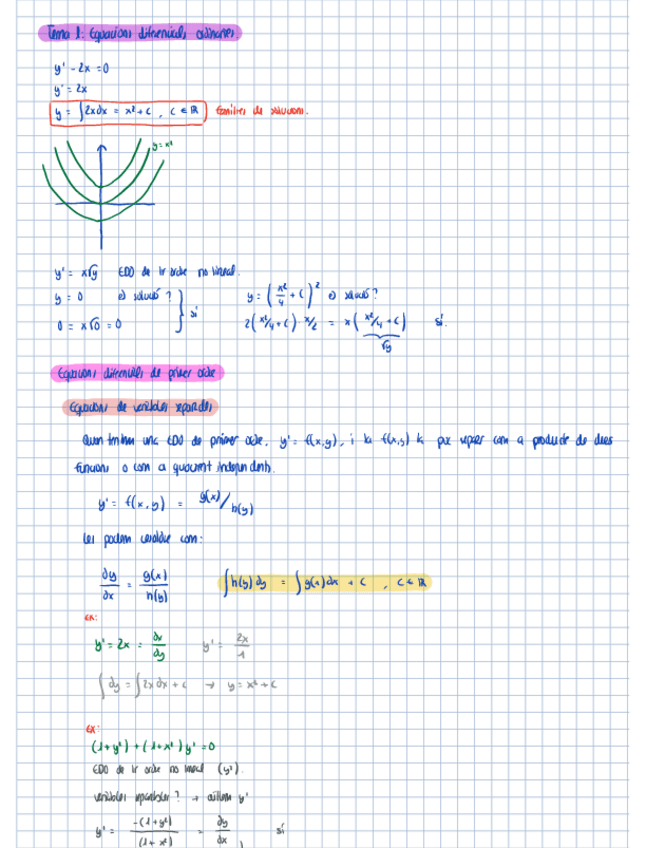 Tema 1: Equacions diferencials ordinàries
y' - 2x = 0
y' = 2x
y = ∫2xdx = x² + C , C ∈ ℝ famílies de solucions.
y = x²
y' = x√y EDO de 1r ordre no lineal.
y = 0 és solució? } sí
0 = x√0 = 0
y = (x²/4 + C)² és solució?
2(x²/4 + C) · x/2 = x(x²/4 + C) sí.
√y
Equacions diferencials de primer ordre
Equacions de variables separables
Quan tenim una EDO de primer ordre, y' = f(x,y), i la f(x,y) la puc separar com a producte de dues
funcions o com a quocient independents.
y' = f(x,y) = g(x)/h(y)
Les podem resoldre com:
dy/dx = g(x)/h(y) ∫h(y)dy = ∫g(x)dx + C , C ∈ ℝ
EX:
y' = 2x = dx/dy y' = 2x/1
∫dy = ∫2xdx + C → y = x² + C
EX:
(1+y²) + (1+x²) y' = 0
EDO de 1r ordre no lineal (y²).
variables separables? → aïllem y'
y' = -(1+y²)/(1+x²) = dy/dx sí